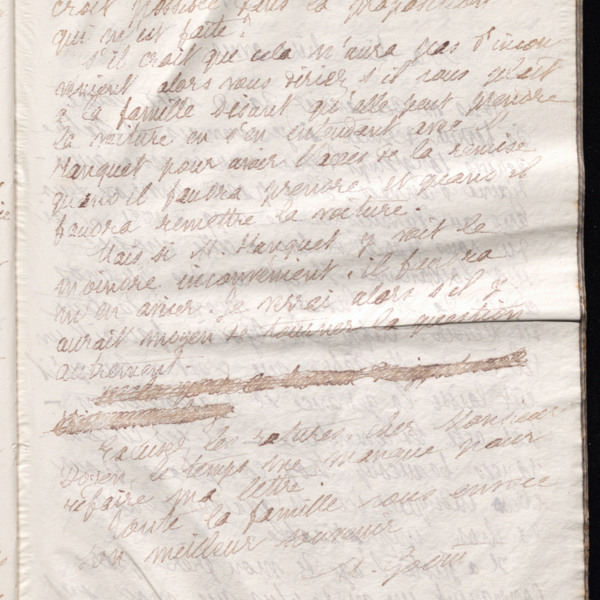 croit possible dans la proposition
qui m'est faite?
S'il croit que cela n'aura pas d'incon
vénient alors vous direz s'il vous plait
à la famille Disant qu'elle peut prendre
la voiture en s'en entendant avec M.
Hanquet pour avoir l'accès de la remise
quand il faudra prendre et quand il
faudra remettre la voiture.
Mais si M. Hanquet y voit le
moindre inconvénient, il faudra
m'en aviser. Je verrai alors s'il y
aurait moyen de tourner la question
autrement
Excusez les ratures, cher Monsieur
Doyen, le temps me manque pour
refaire ma lettre.
Toute la famille vous envoie
son meilleur souvenir